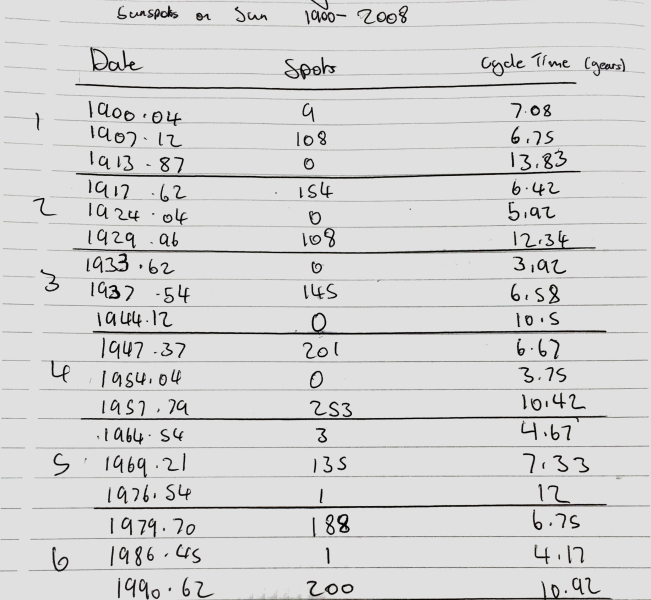 Sunspots on Sun 1900-2008
Date Spots Cycle Time (years)
1 1900.04 9 7.08
1907.12 108 6.75
1913.87 0 13.83
1917.62 154 6.42
2 1924.04 0 5.92
1929.96 108 12.34
1933.62 0 3.92
3 1937.54 145 6.58
1944.12 0 10.5
1947.37 201 6.67
4 1954.04 0 3.75
1957.79 253 10.42
1964.54 3 4.67
5 1969.21 135 7.33
1976.54 1 12
1979.70 188 6.75
6 1986.45 1 4.17
1990.62 200 10.92